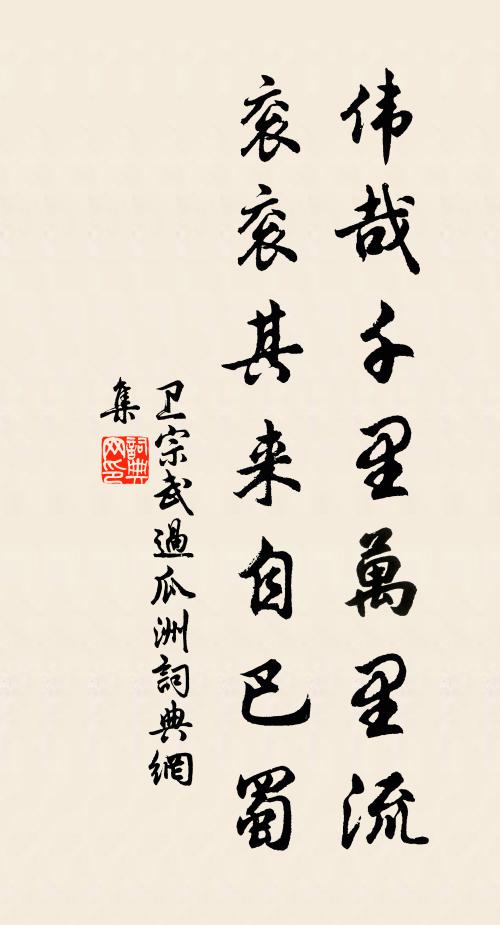 伟哉千里萬里流
衮衮其来自巴蜀
卫宗武過瓜洲詞典網
集
詞典网印